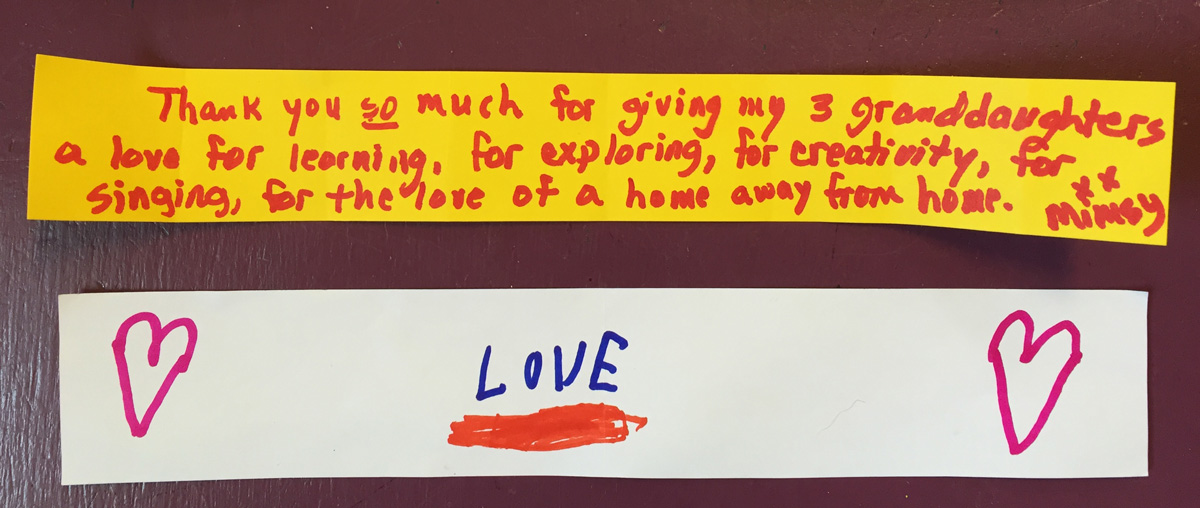 Thank you so much for giving my 3 granddaughters
a love for learning, for exploring, for creativity, for
singing, for the love of a home away from home. xx
mimsy
LOVE